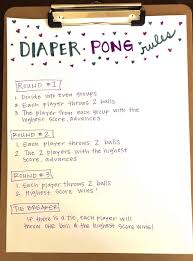 DIAPER PONG rules
ROUND #1
1. Divide into even groups
2. Each player throws 2 balls
3. The player from each group with the
highest score, advances
ROUND #2
1. Each player throws 2 balls
2. The 2 players with the highest
score, advances
ROUND #3
1. Each player throws 2 balls
2. Highest Score Wins!
TIE BREAKER
If there is a tie, each player will
throw one ball & the highest score wins!